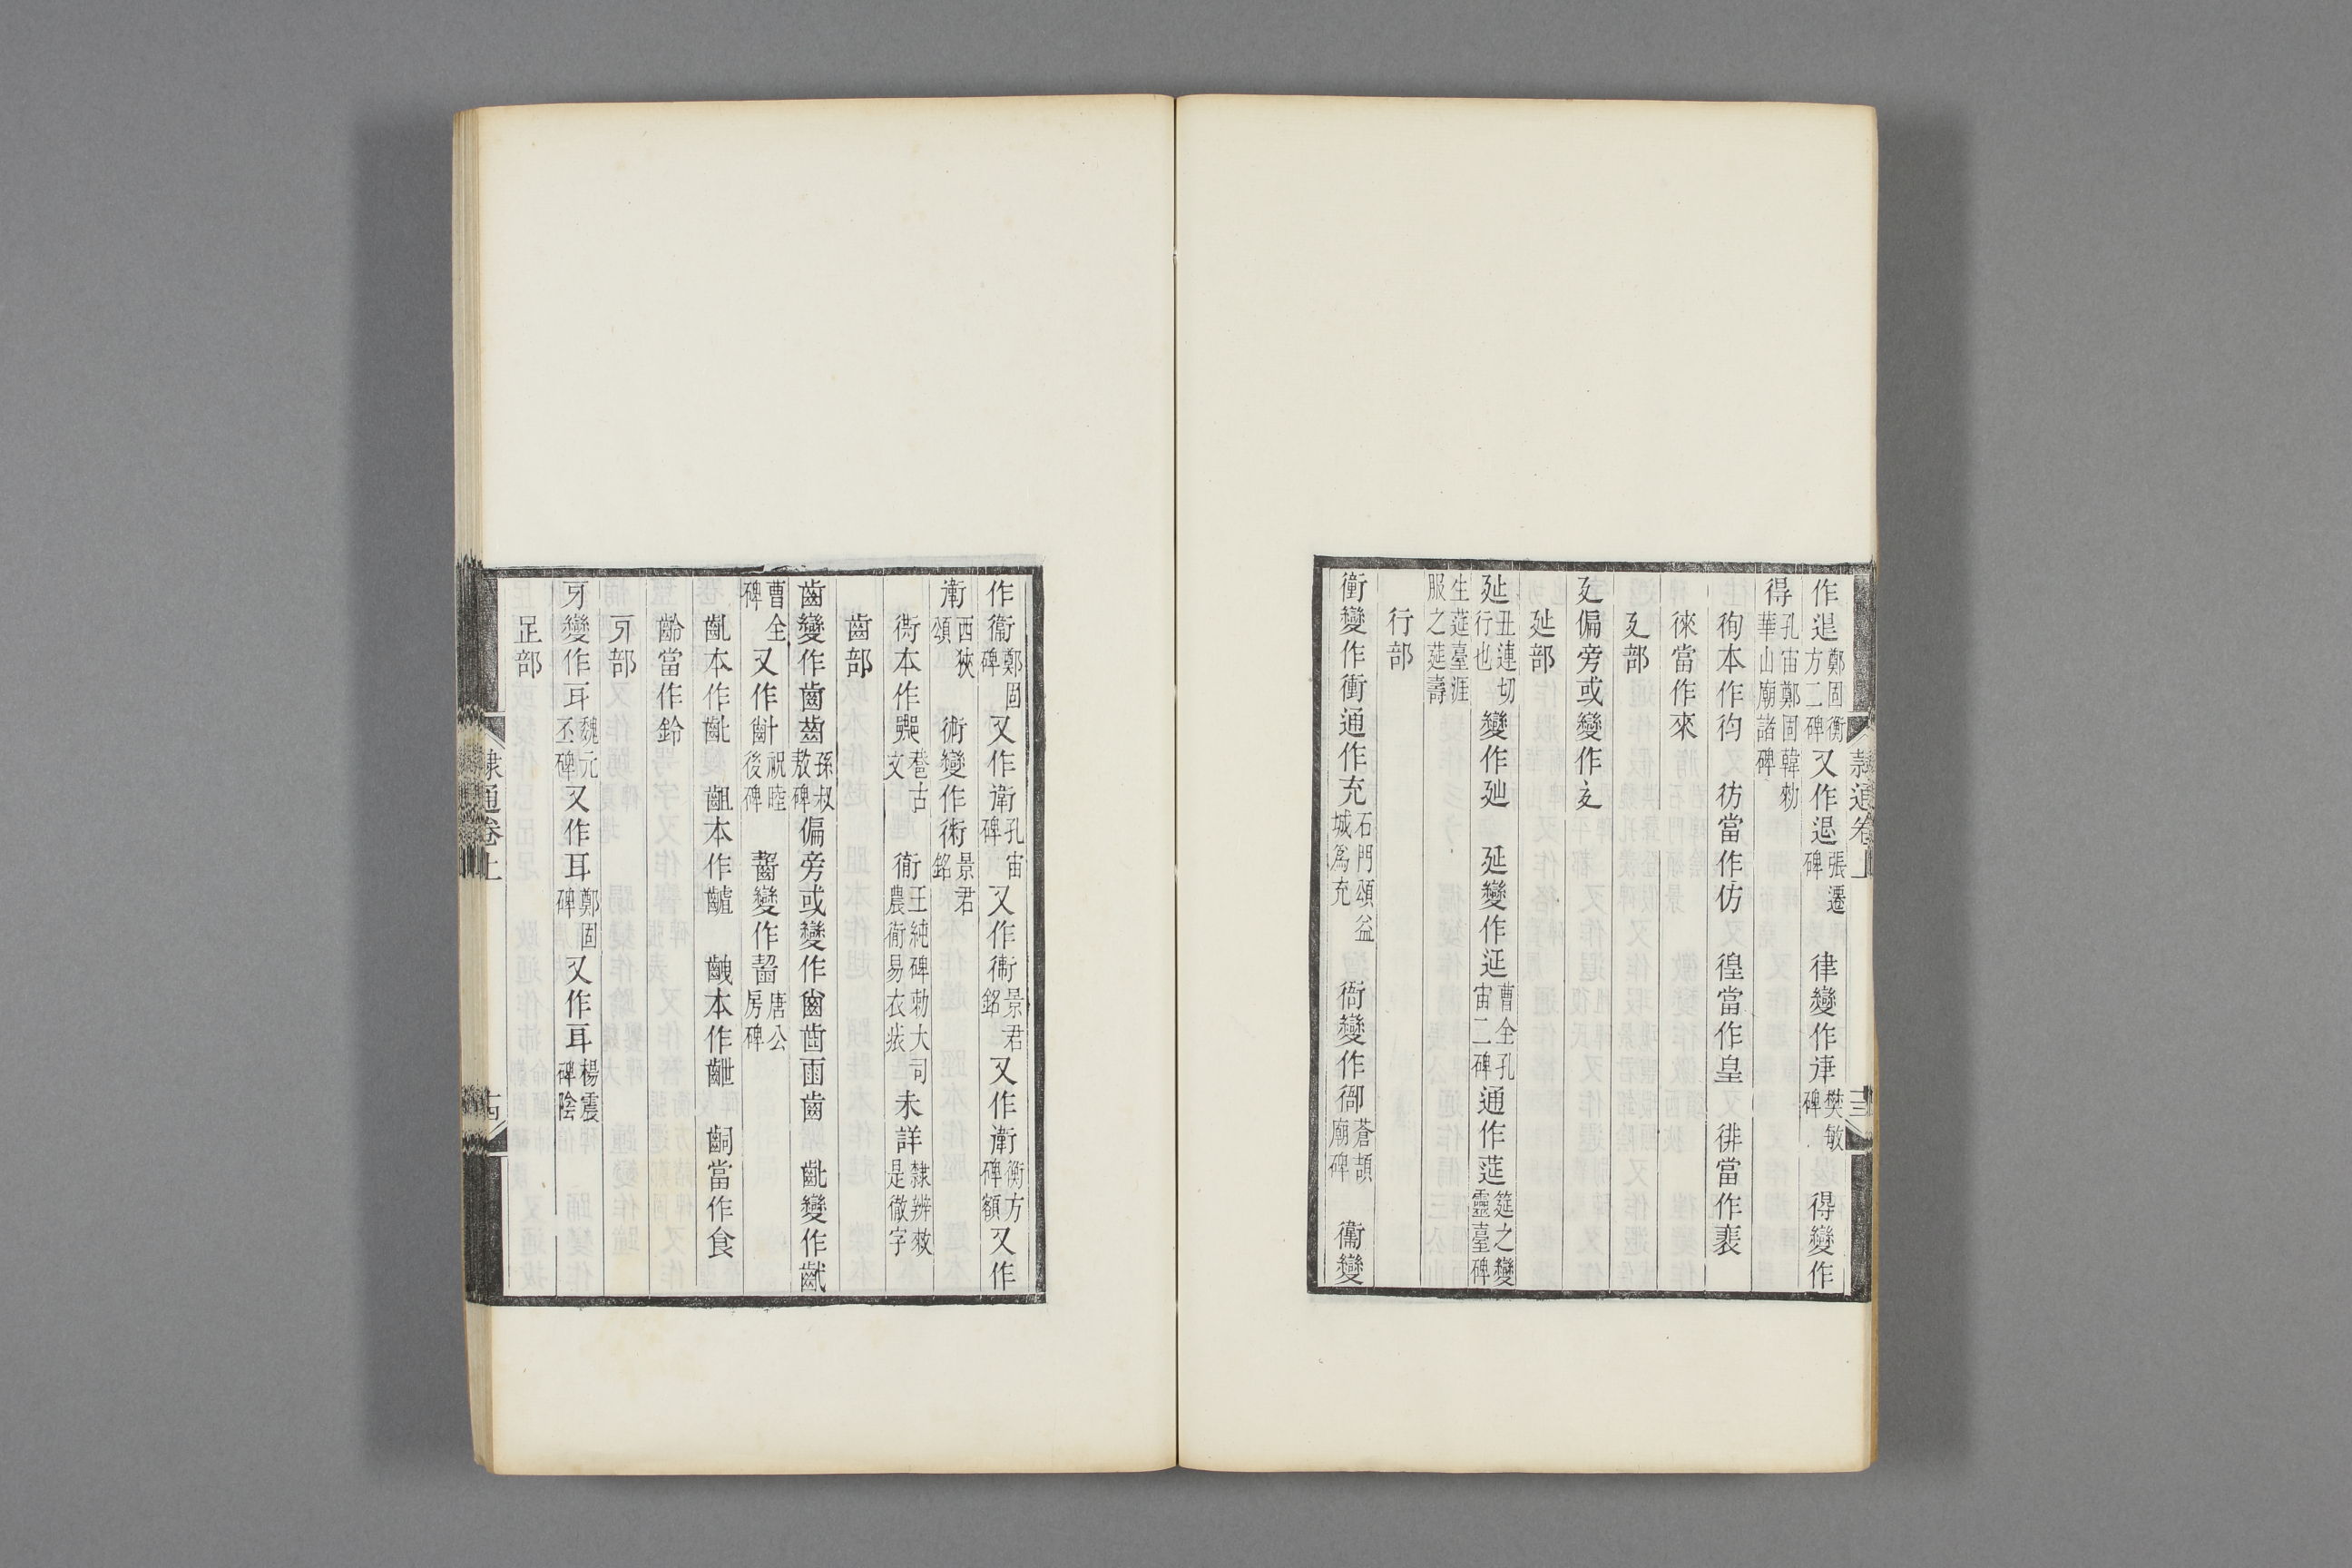 作𨓤鄭固衡方二碑又作退張遷碑 律變作㣸樊敏碑 得變作
得孔宙鄭固韓勑華山廟諸碑
徇本作袀 彷當作仿 徨當作皇 徘當作裵
徠當作來
廴部
廴偏旁或變作辶
㢟部
㢟丑連切行也變作𨑒 延變作延曹全孔宙二碑通作莚筵之變靈臺碑
生莚臺涯服之莚壽
行部
衝變作衝通作充石門頌益城爲充 衙變作御蒼頡廟碑 衞變
隸通卷上
十三
作衞鄭固碑又作衛孔宙碑又作衞景君銘又作衛衡方碑額又作
衛西狹頌 術變作術景君銘 衜王純碑勅大司農衜易衣裘未詳隸辨敚是徹字
衖本作𨞠巷古文
齒部
齒變作齒齒孫叔敖碑偏旁或變作齒齒齒齒 齔變作齓
曹全碑又作齠祝睦後碑 齧變作齧唐公房碑
齓本作齔 齟本作齇 齥本作齛 齝當作食
齡當作鈴
牙部
牙變作耳魏元丕碑又作耳鄭固碑又作耳楊震碑陰
足部
隸通卷上
十四